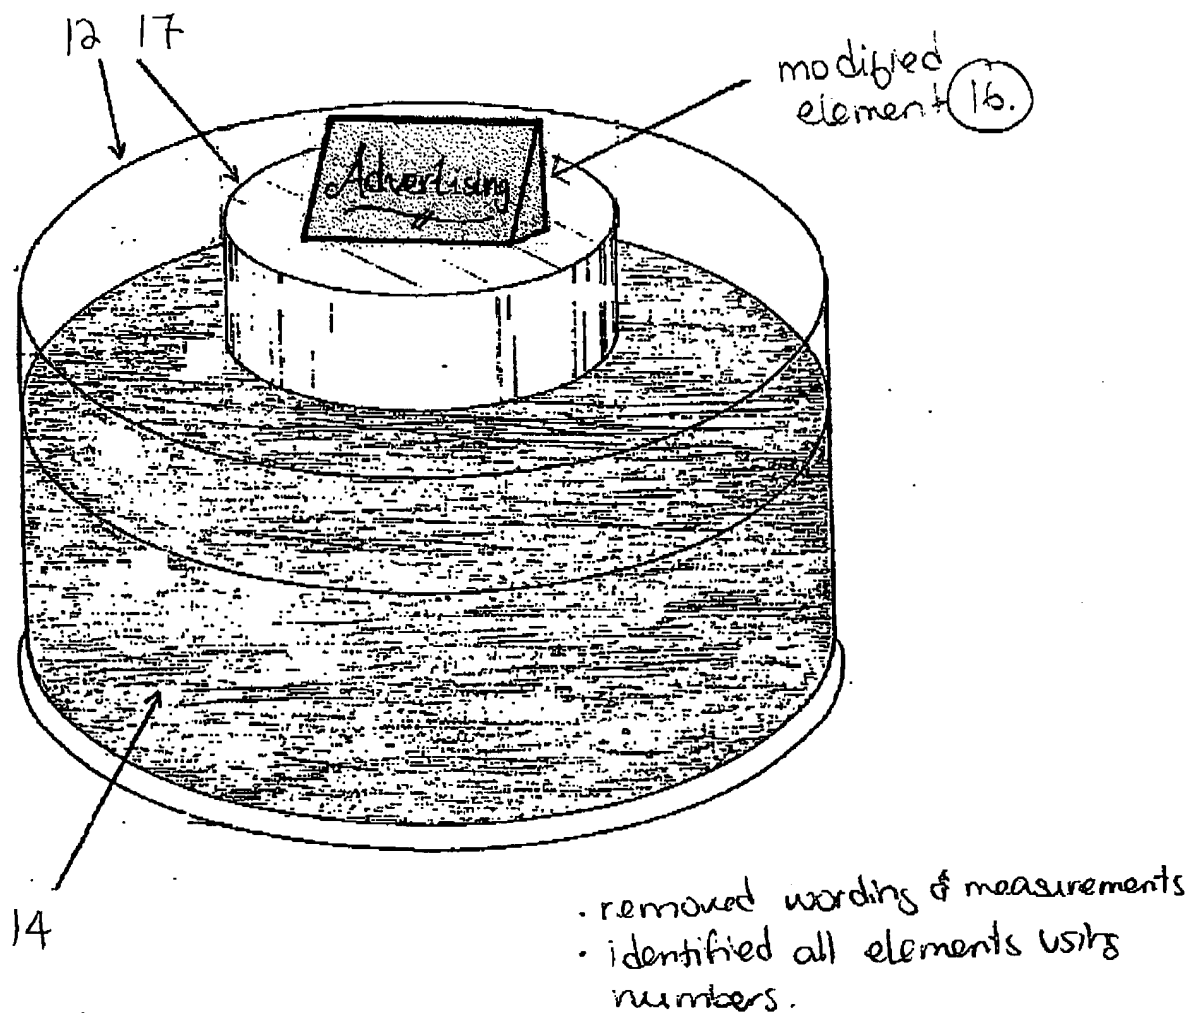 12 17
modified
element 16.
Advertising
14
· removed wording & measurements
· identified all elements using
numbers.